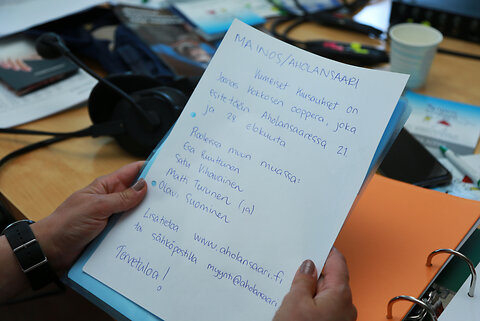 MAINOS/AHOLANSAARI
Viimeiset kiusaukset on
Joonas Kokkosen ooppera, joka
esitetään Aholansaaressa 21.
ja 24. elokuuta
Rooleissa muun muassa:
Esa Ruuttunen
Satu Vihavainen
Matti Turunen (ja)
Olavi Suominen
Lisätietoa www.aholansaari.fi
tai sähköpostilla myynti@aholansaari.
Tervetuloa!